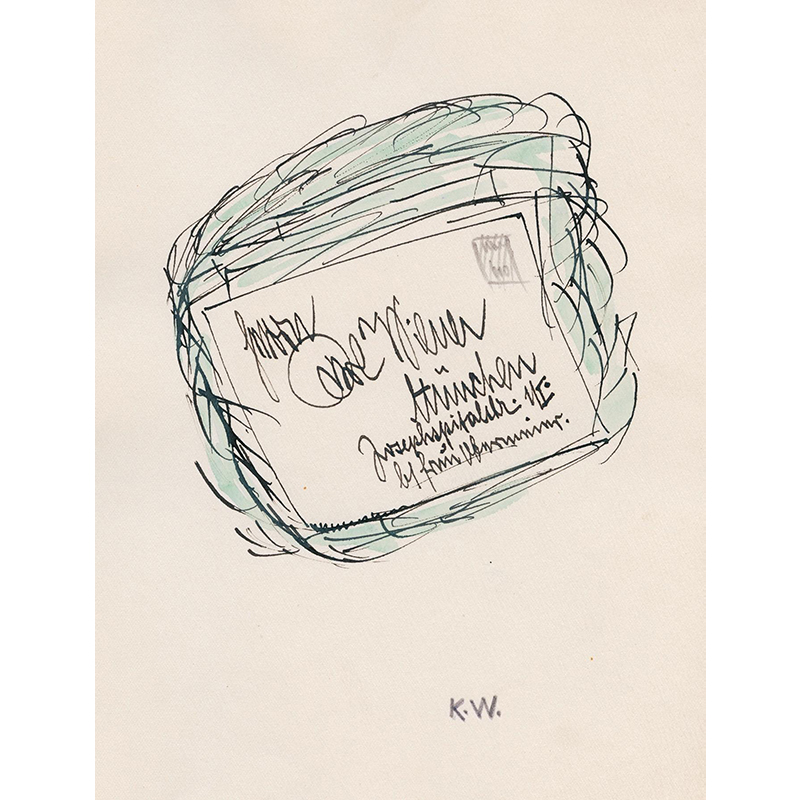 Herrn
Karl Wiener
München
Josephspitalstr.
bei Frau
K.W.